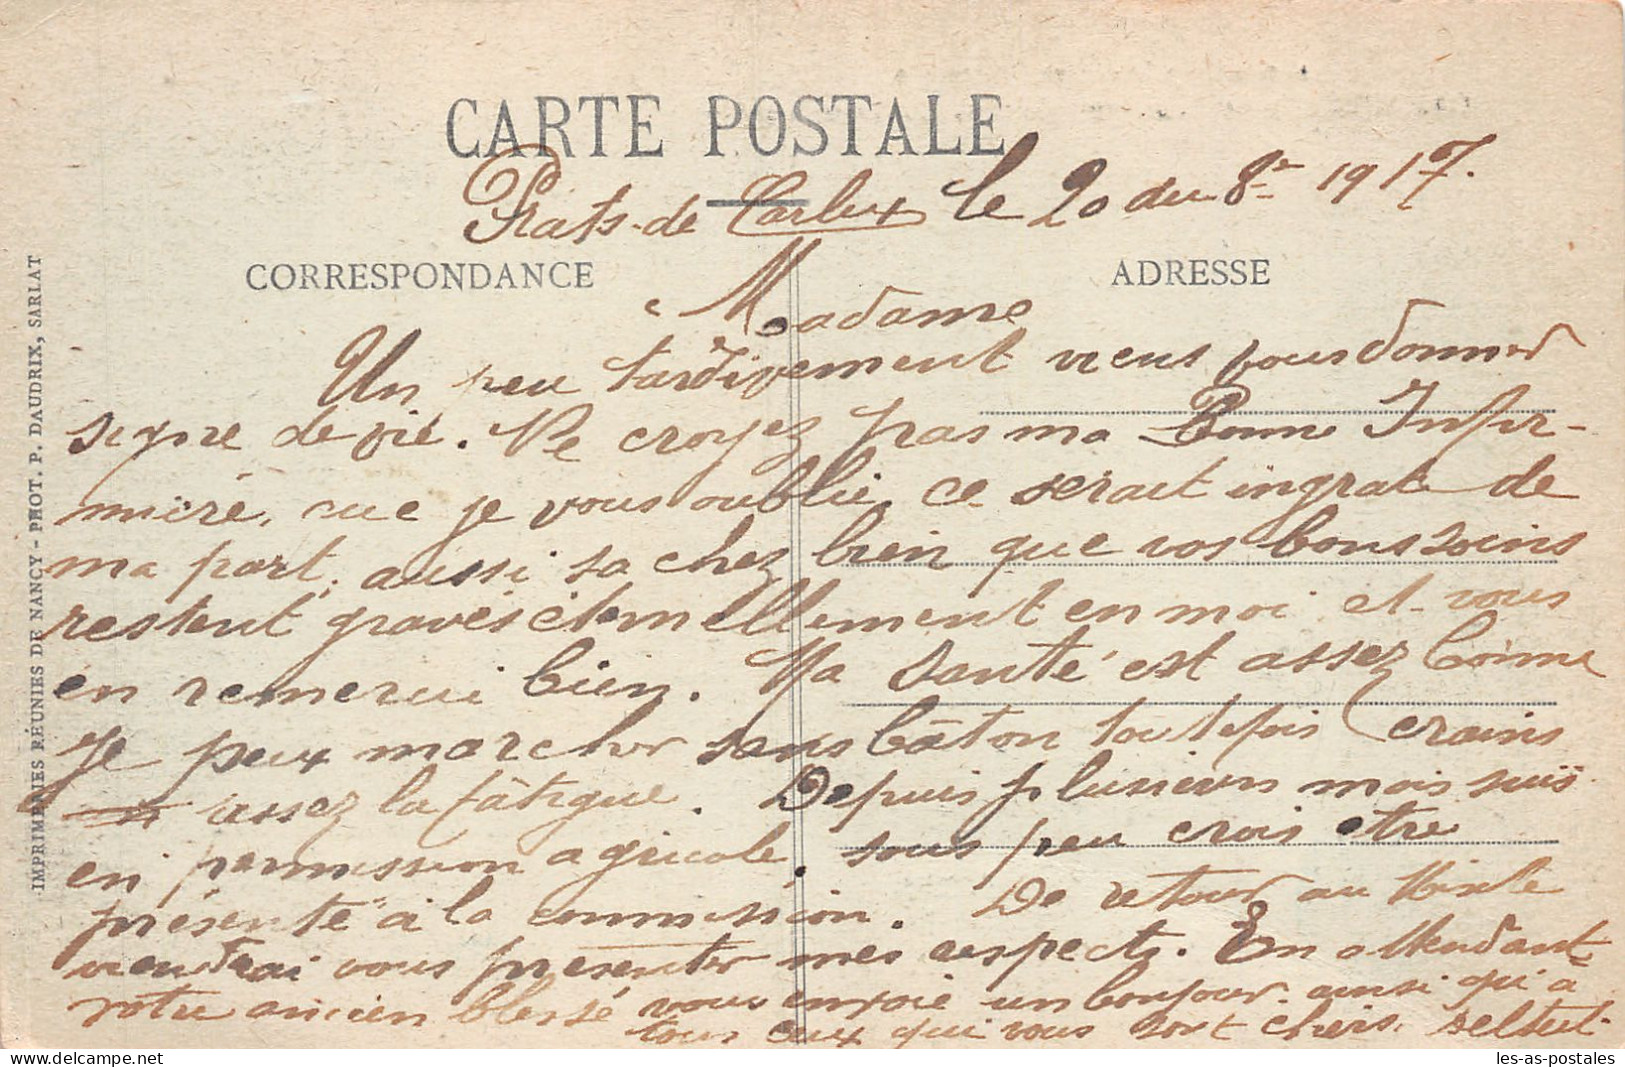 CARTE POSTALE
Prats-de Carlux le 20 du 8re 1917.
CORRESPONDANCE
ADRESSE
Madame
Un peu tardivement viens vous donner
signe de vie. Ne croyez pas ma Bonne Infir-
mière, que je vous oublie, ce serait ingrat de
ma part, aussi sachez bien que vos bons soins
restent gravés éternellement en moi et vous
en remercie bien. Ma santé est assez bonne
Je peux marcher sans bâton toutefois crains
assez la fâtigue. Depuis plusieurs mois suis
en permission agricole, sous peu crois être
présenté à la commission. De retour au
viendrai vous présenter mes respects. En attendant
votre ancien blessé vous envoie un bonjour ainsi qu'à
tous ceux qui vous sont chers.
IMPRIMERIES RÉUNIES DE NANCY - PHOT. P. DAUDRIX, SARLAT
les-as-postales